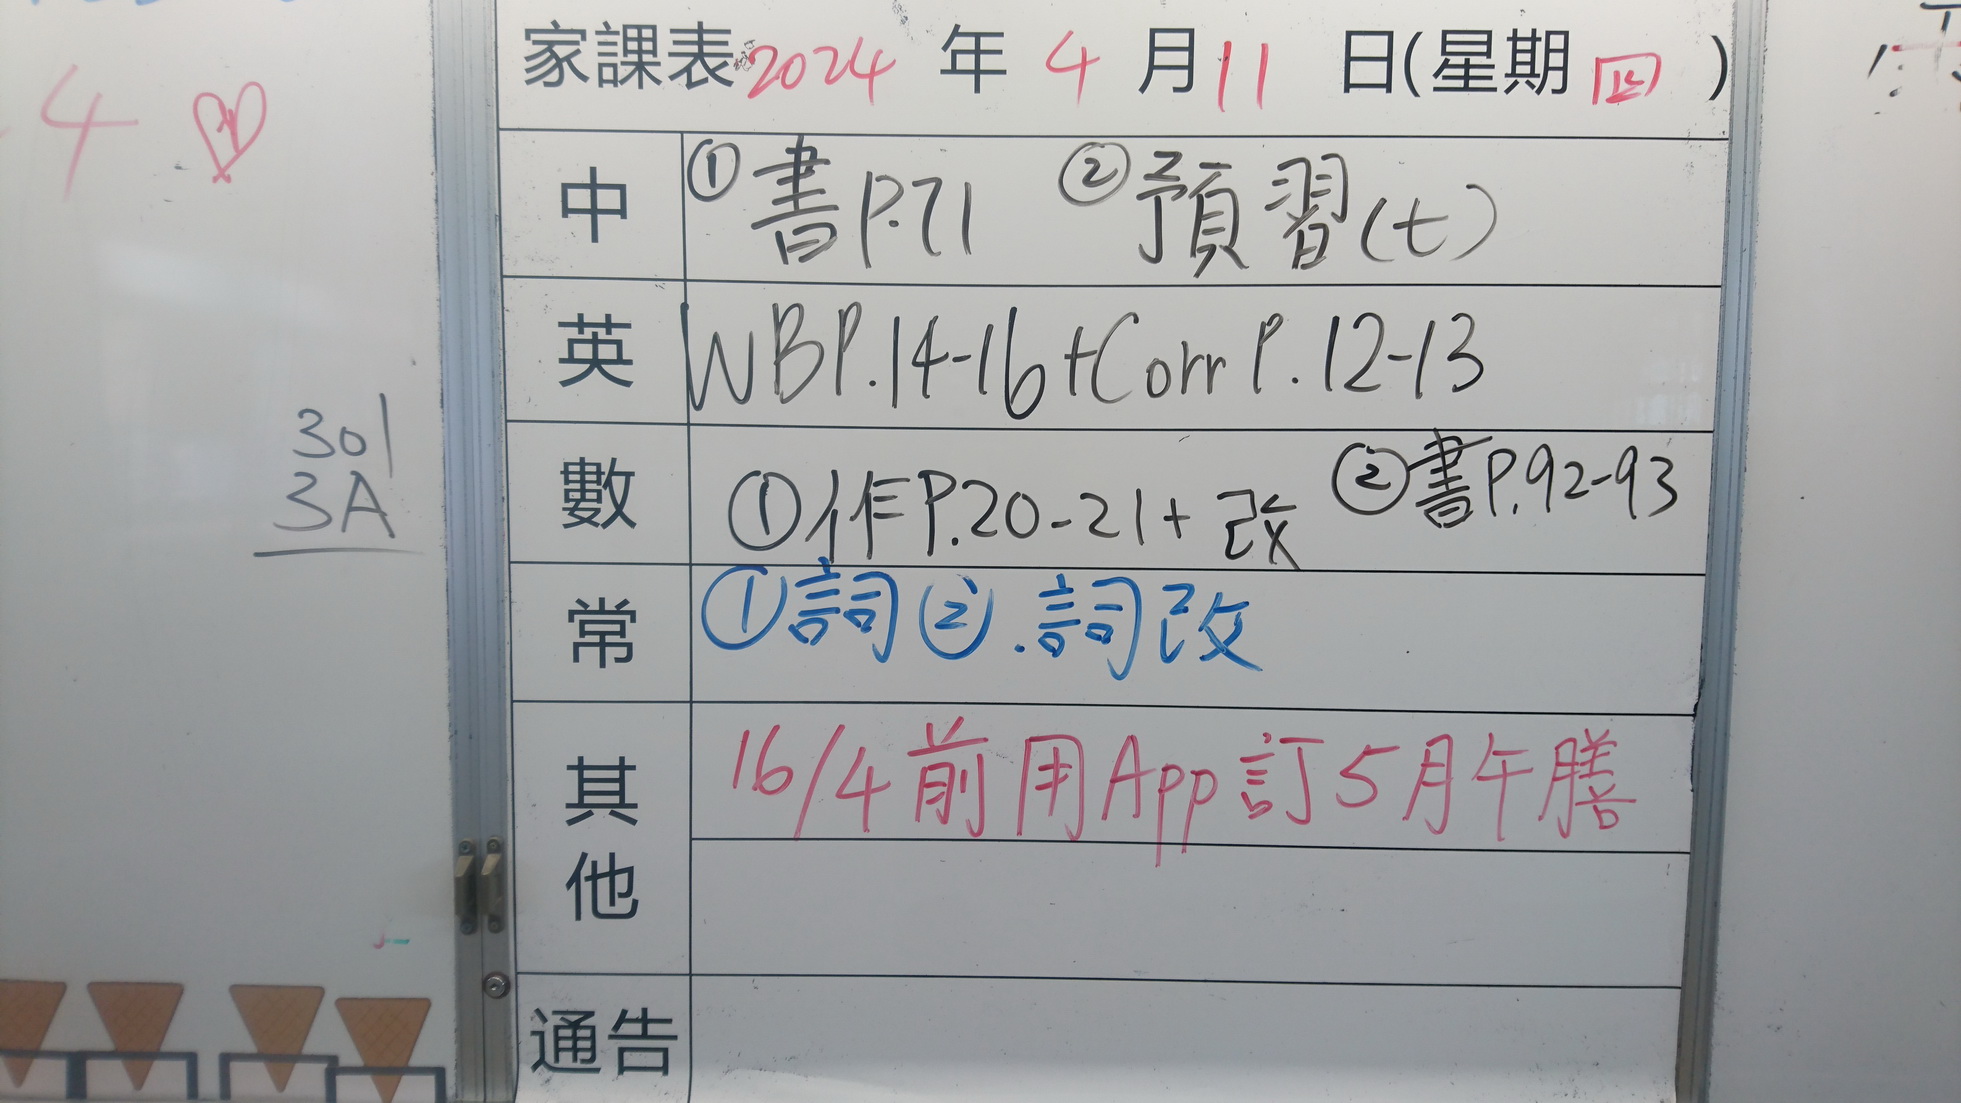 4
301
3A
家課表 2024 年 4 月 11 日(星期四)
中 ①書P.71 ②預習(七)
英 WBP.14-16+Corr P.12-13
數 ①作P.20-21+改 ②書P.92-93
常 ①詞②.詞改
其他 16/4前用App訂5月午膳
通告